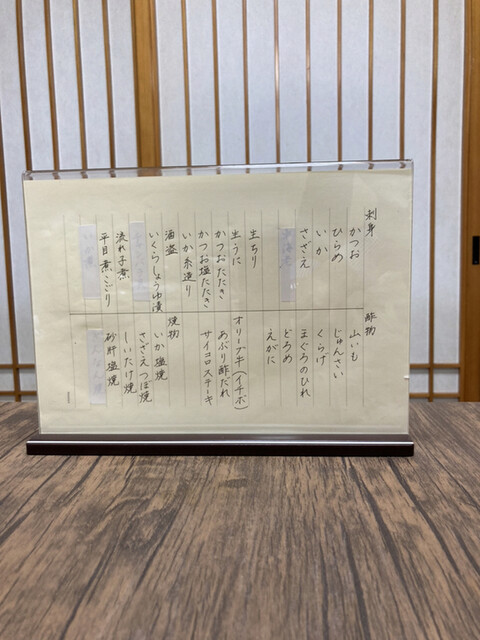 刺身
かつお
ひらめ
いか
さざえ
生ちり
生うに
かつおたたき
かつお塩たたき
いか糸造り
酒盗
いくらしょうゆ漬
流れ子煮
平目煮こごり
酢物
山いも
じゅんさい
くらげ
まぐろのひれ
どろめ
えがに
オリーブ牛(イチボ)
あぶり酢だれ
サイコロステーキ
焼物
いか塩焼
さざえつぼ焼
しいたけ焼
砂肝塩焼